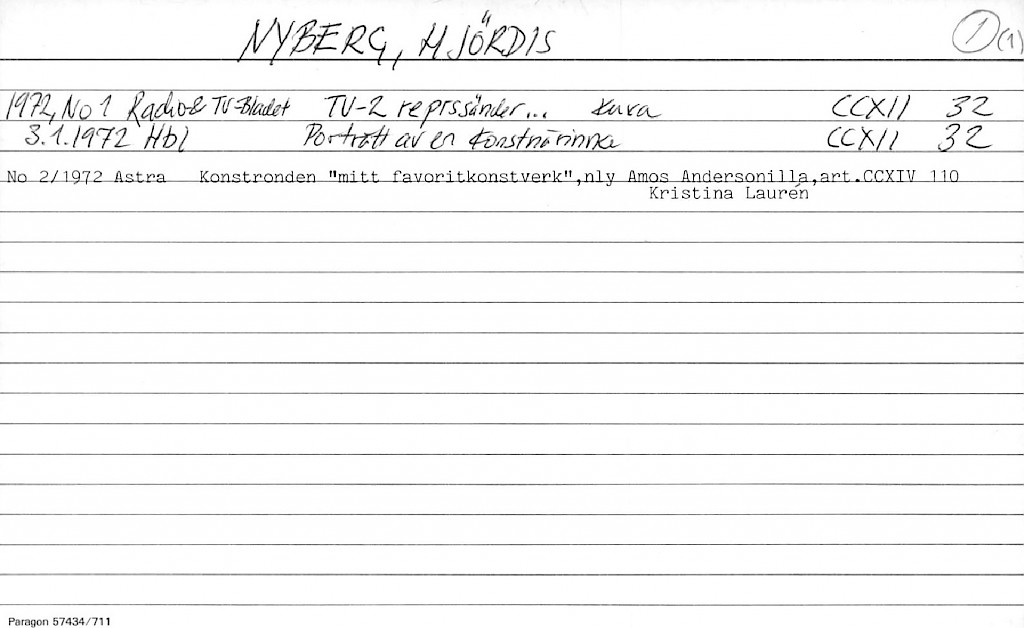 NYBERG, HJÖRDIS
1 (1)
1972, No 1 Radio & TV-Bladet TV-2 reprissänder... kuva CCXII 32
3.1.1972 Hbl Porträtt av en konstnärinna CCXII 32
No 2/1972 Astra Konstronden "mitt favoritkonstverk",nly Amos Andersonilla,art.CCXIV 110
Kristina Laurén
Paragon 57434/711